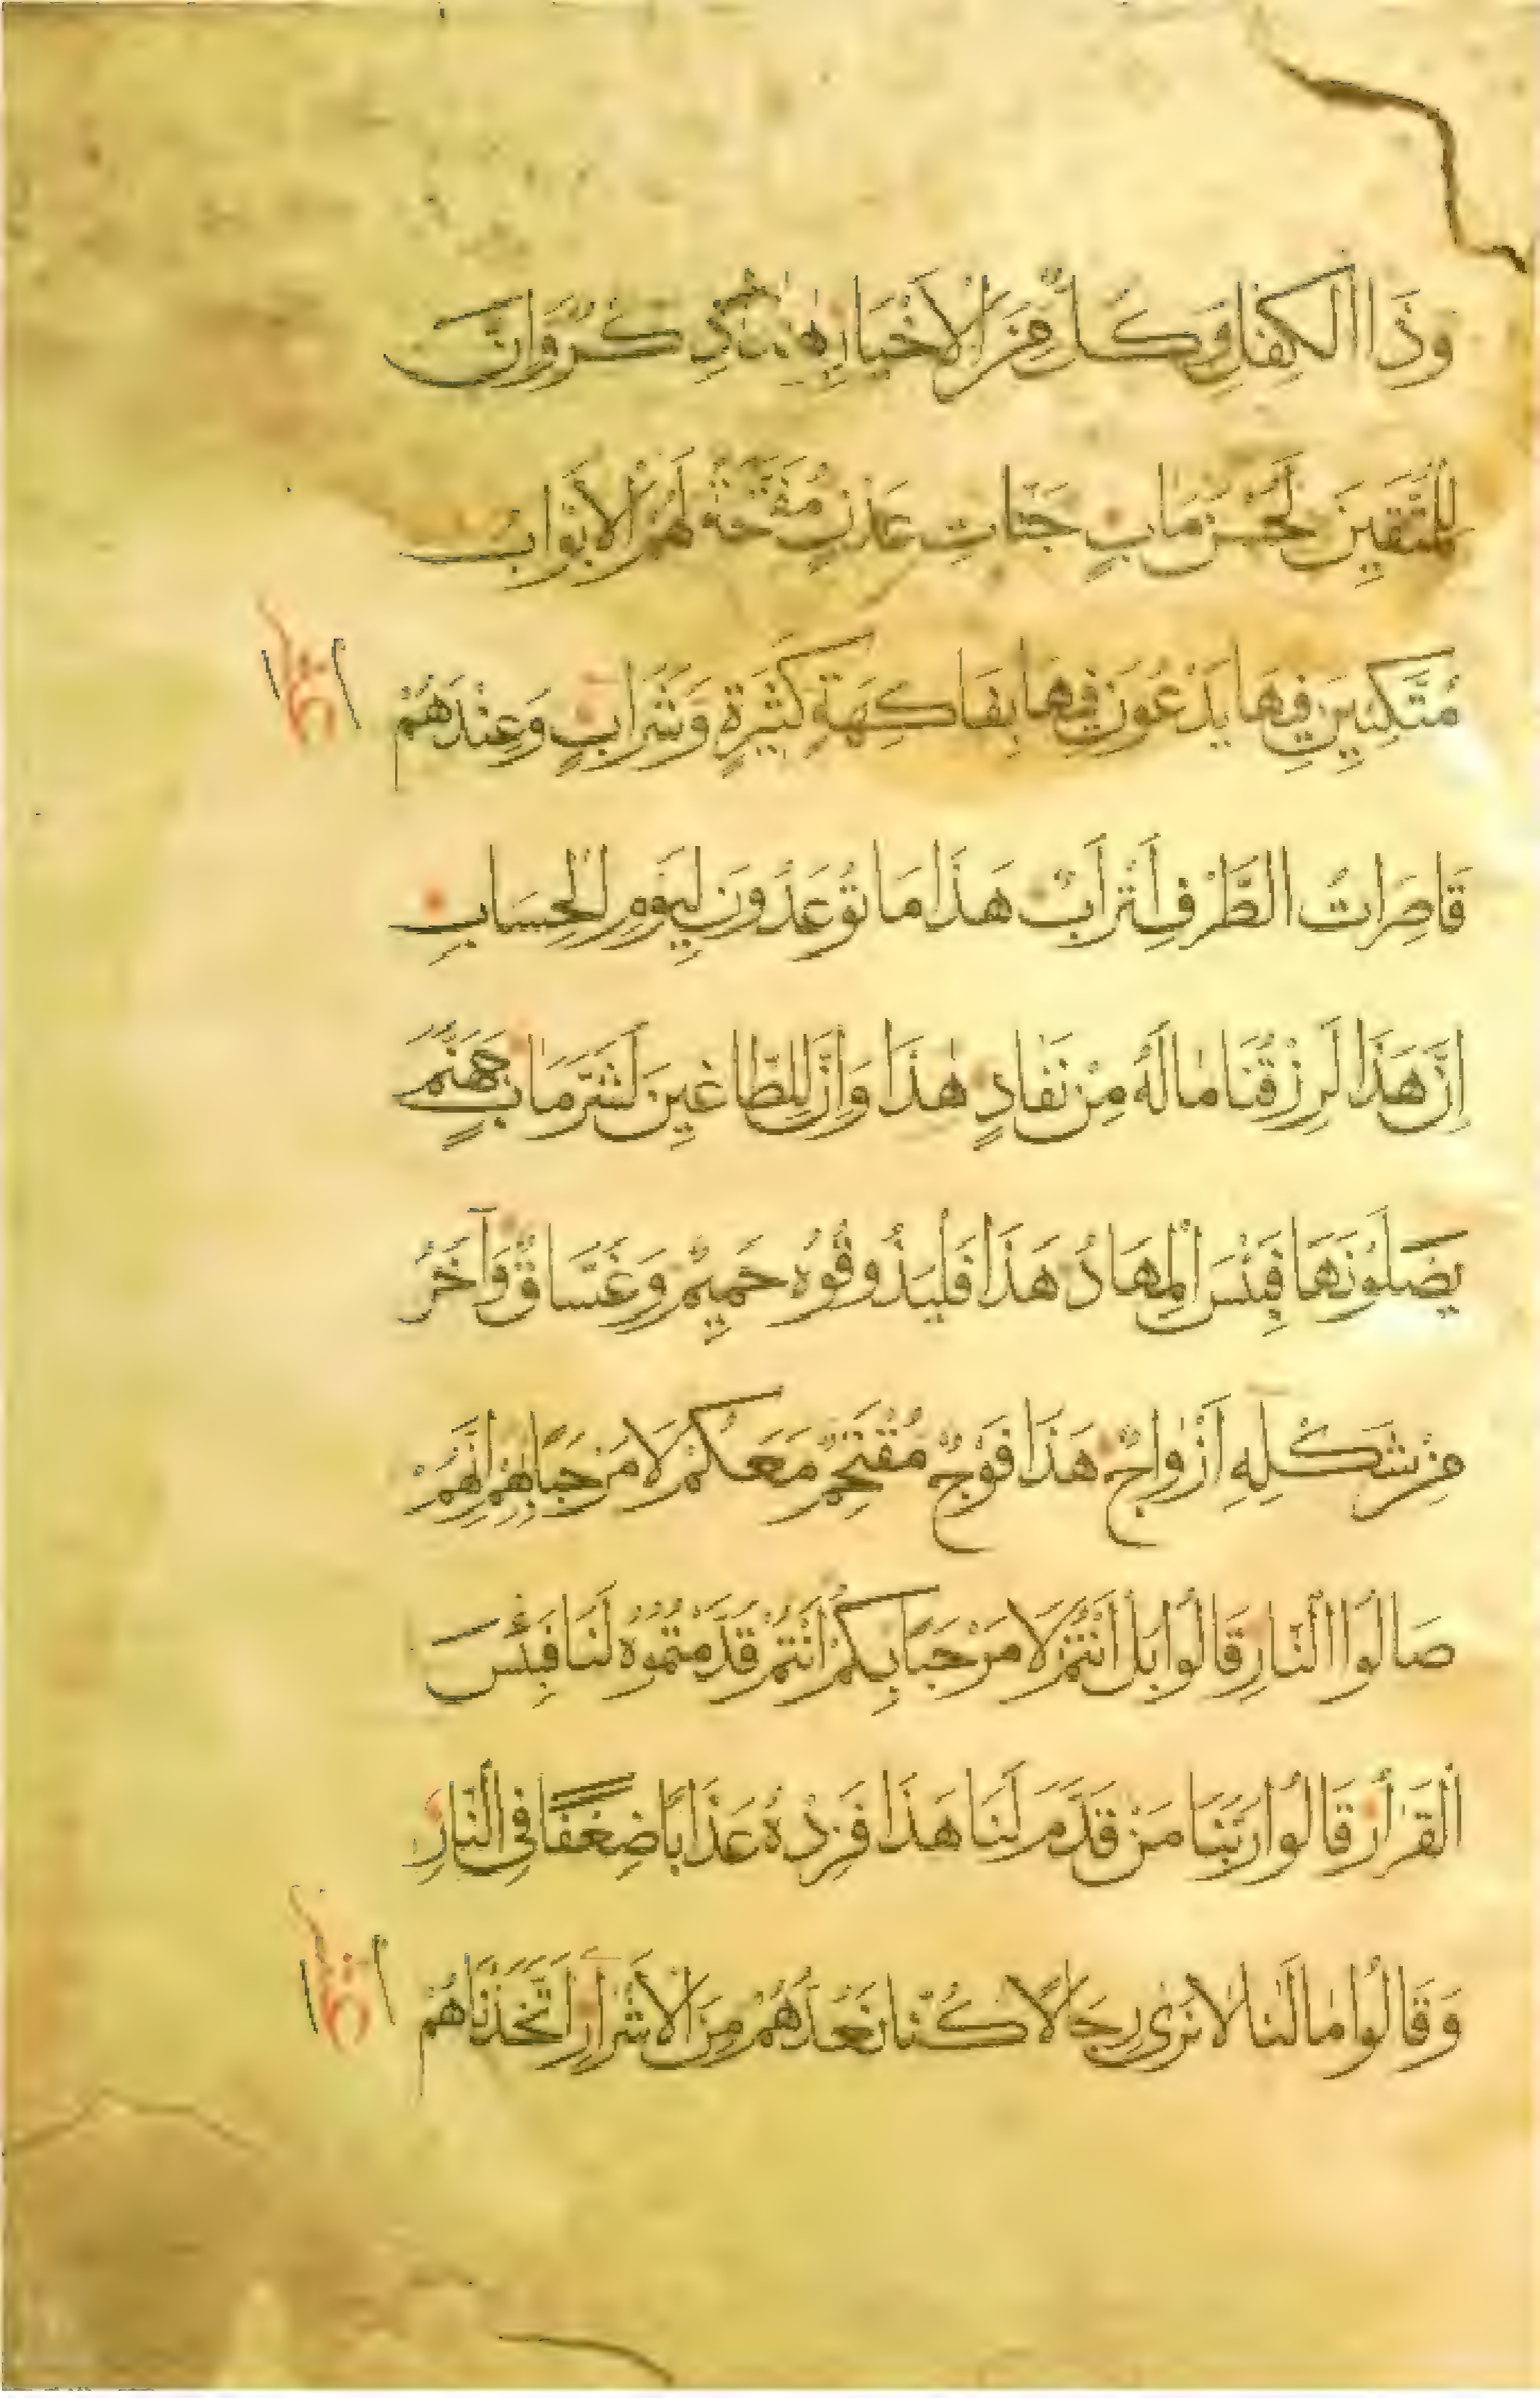 وَذَا الْكِفْلِ وَكُلٌّ مِنَ الْاَخْيَارِ هٰذَا ذِكْرٌ وَاِنَّ
لِلْمُتَّقِينَ لَحُسْنَ مَاٰبٍ جَنَّاتِ عَدْنٍ مُفَتَّحَةً لَهُمُ الْاَبْوَابُ
مُتَّكِـِٔينَ فِيهَا يَدْعُونَ فِيهَا بِفَاكِهَةٍ كَثِيرَةٍ وَشَرَابٍ وَعِنْدَهُمْ
قَاصِرَاتُ الطَّرْفِ اَتْرَابٌ هَذَا مَا تُوعَدُونَ لِيَوْمِ الْحِسَابِ
اِنَّ هَذَا لَرِزْقُنَا مَا لَهُ مِنْ نَفَادٍ هٰذَا وَاِنَّ لِلطَّاغِينَ لَشَرَّ مَاٰبٍ جَهَنَّمَ
يَصْلَوْنَهَا فَبِئْسَ الْمِهَادُ هَذَا فَلْيَذُوقُوهُ حَمِيمٌ وَغَسَّاقٌ وَآخَرُ
مِنْ شَكْلِهِ اَزْوَاجٌ هَذَا فَوْجٌ مُقْتَحِمٌ مَعَكُمْ لَا مَرْحَبًا بِهِمْ اِنَّهُمْ
صَالُوا النَّارِ قَالُوا بَلْ اَنْتُمْ لَا مَرْحَبًا بِكُمْ اَنْتُمْ قَدَّمْتُمُوهُ لَنَا فَبِئْسَ
الْقَرَارُ قَالُوا رَبَّنَا مَنْ قَدَّمَ لَنَا هَذَا فَزِدْهُ عَذَابًا ضِعْفًا فِي النَّارِ
وَقَالُوا مَا لَنَا لَا نَرٰى رِجَالًا كُنَّا نَعُدُّهُمْ مِنَ الْاَشْرَارِ اَتَّخَذْنَاهُمْ